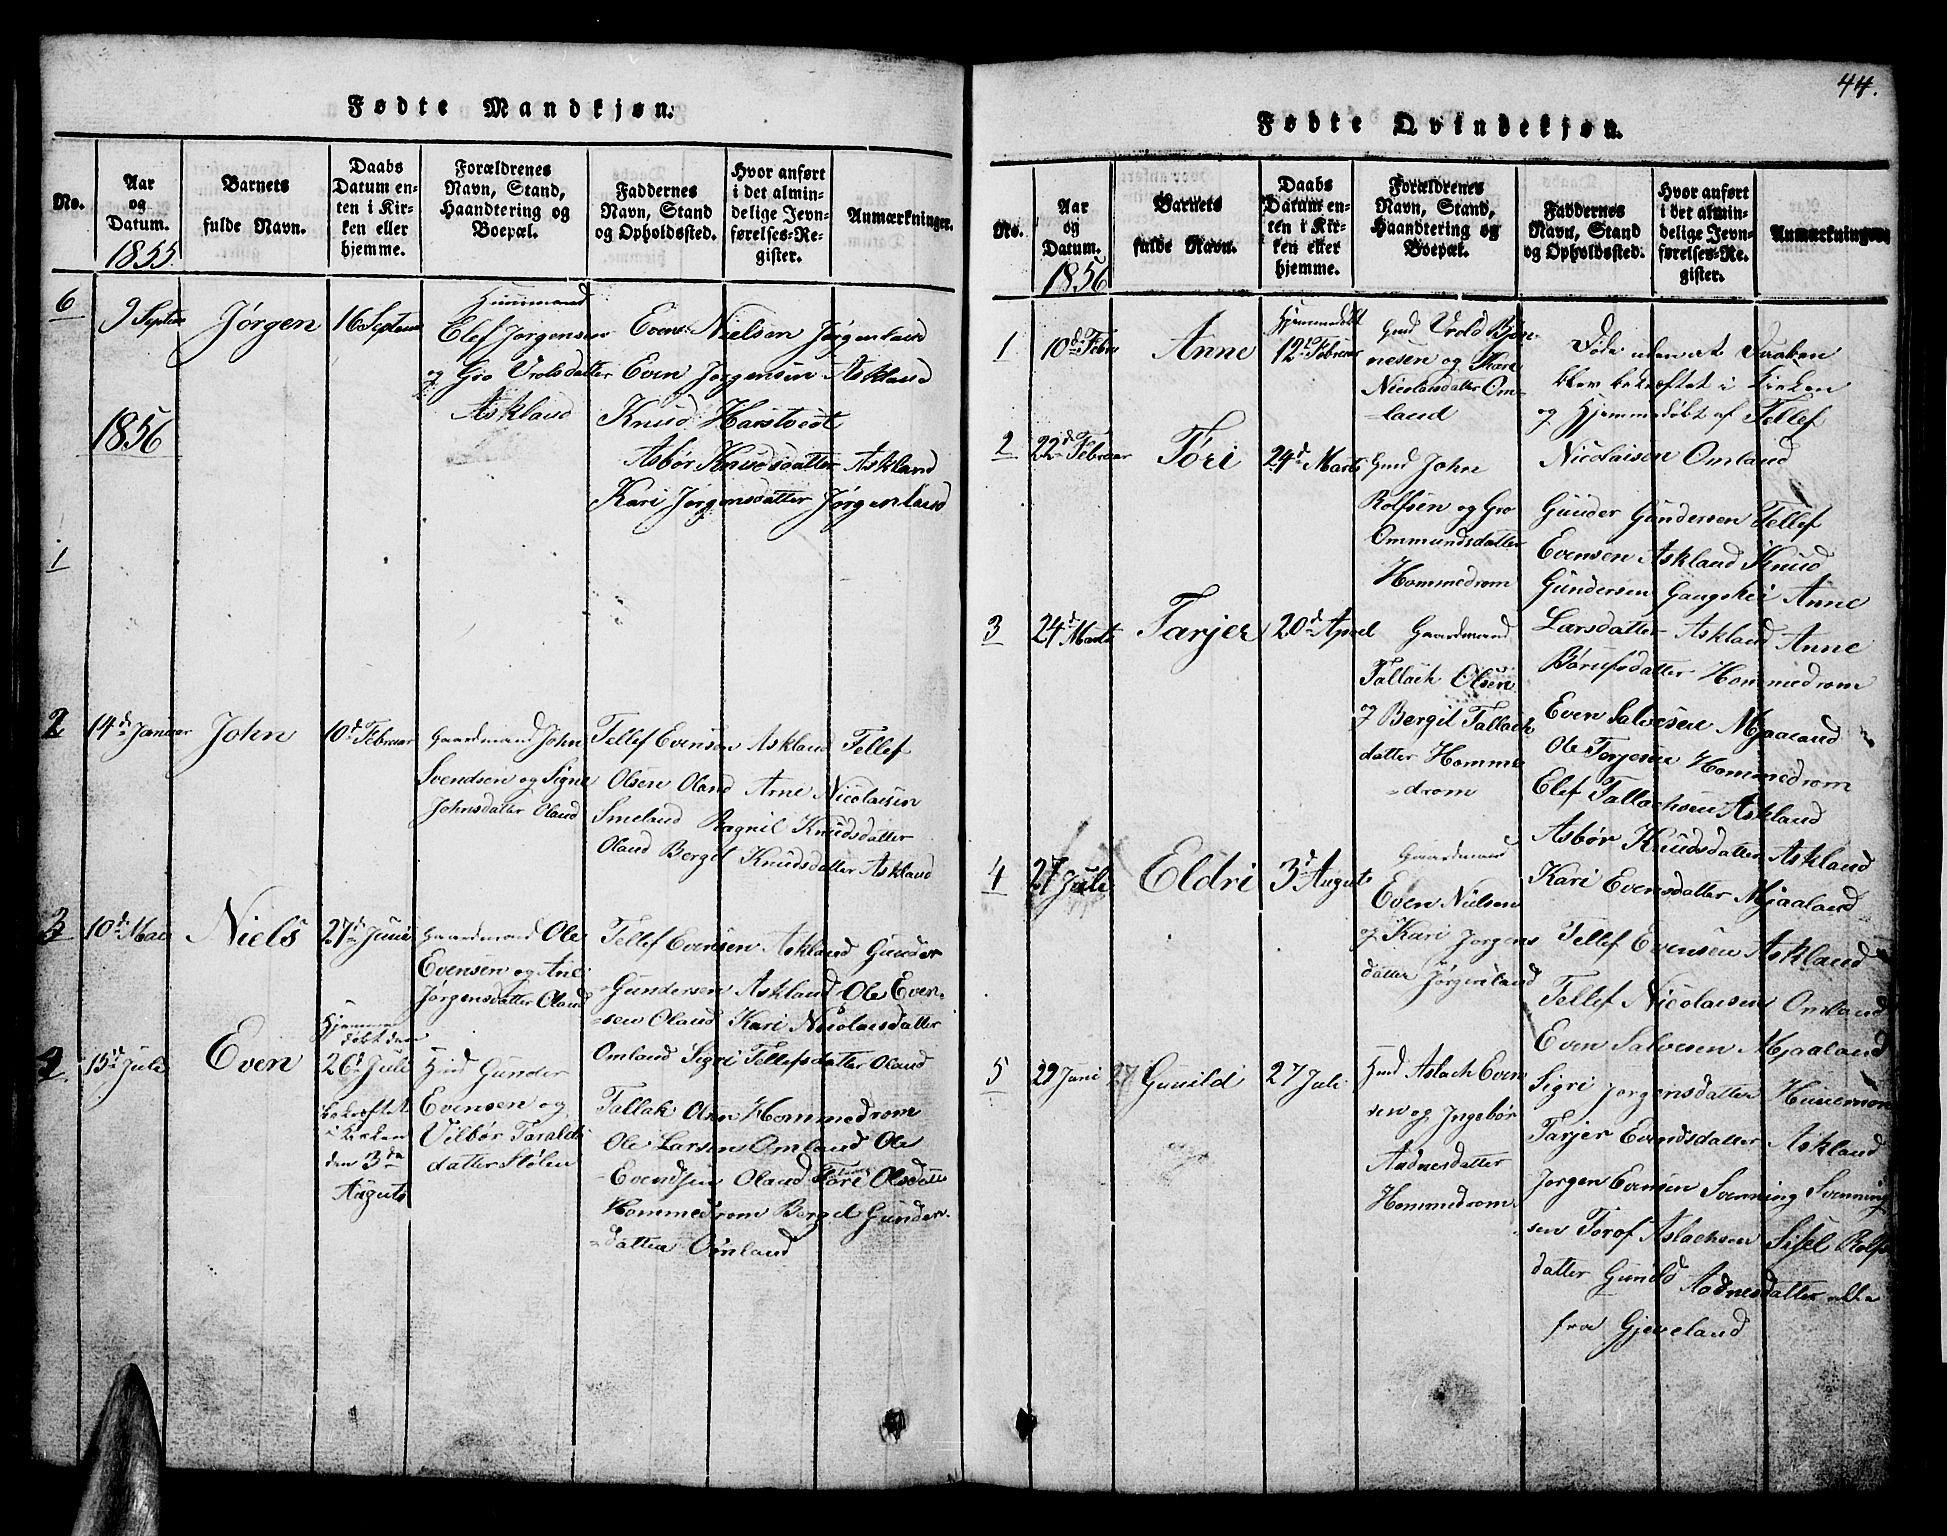 Fødte Mandkjøn.
No.
Aar
og
Datum.
1855.
Barnets
fulde Navn.
Daabs
Datum en-
ten i Kir-
ken eller
hjemme.
Forældrenes
Navn, Stand,
Haandtering og
Boepæl.
Faddernes
Navn, Stand
og Opholdssted.
Hvor anført
i det almin-
delige Jevn-
førelses-Re-
gister.
Anmærkninger.
6
9 Septem
Jørgen
16 Septem
Huusmand
Elef Jørgensen
og Gro Vrolsdatter
Askland
Even Nielsen Jørgenland
Even Jørgensen Askland
Knud Harstvedt
Asbør Knudsdatter Askland
Kari Jørgensdatter Jørgenland
1856
1
2
14d Januar
John
10d Februar
Gaardmand John
Svendsen og Signe
Johnsdatter Oland
Tellef Evensen Askland Tellef
Olsen Oland Arne Nicolaisen
Smeland Ragnil Knudsdatter
Oland Bergit Knudsdatter Askland
3
10d Mai
Niels
27d Juni
Gaardmand Ole
Evensen og Ane
Jørgensdatter Oland
Tellef Evensen Askland Gunder
Gundersen Askland Ole Even-
-sen Oland Kari Nicolaisdatter
Omland Sigri Tellefsdatter Oland
4
15d Juli
Even
Hjemme
døbt den
26d Juli
bekræftet
i kirken
den 3da
Augusts
Gmd Gunder
Evensen og
Vilbør Taralds
datter Stølen
Tallak Olsen Hommedrom
Ole Larsen Omland Ole
Evendsen Oland Tori Olsdatter
Hommedrom Bergel Gunder-
-datter Omland
44.
Fødte Qvindekjøn.
No.
Aar
og
Datum.
1856
Barnets
fulde Navn.
Daabs
Datum en-
ten i Kir-
ken eller
hjemme.
Forældrenes
Navn, Stand,
Haandtering og
Boepæl.
Faddernes
Navn, Stand
og Opholdssted.
Hvor anført
i det almin-
delige Jevn-
førelses-Re-
gister.
Anmærkninger
1
10d Febr
Anne
Hjemmedøbt
12d Februar
Gmd Vrold Bjøn-
nesen og Kari
Nicolaisdatter Om-
-land
Døde uden at Daaben
blev bekræftet i Kirken
og Hjemmedøbt af Tellef
Nicolaisen Omland
2
22d Februar
Tóri
24d Marts
Gmd John
Rolfsen og Gro
Ommundsdatter
Hommedrom
Gunder Gundersen Tellef
Evensen Askland Knud
Gundersen Gangshei Anne
Larsdatter Askland Anne
Børufsdatter Hommedrom
3
24d Marts
Tarjer
20d April
Gaardmand
Tallack Olsen
og Bergit Tallach
datter Homme
-drom
Even Salvesen Mjaaland
Ole Torjesen Hommedrom
Elef Tallachsen Askland
Asbør Knudsdatter Askland
Kari Evensdatter Mjaaland
4
27 Juli
Eldri
3d Augusts
Gaardmand
Even Nielsen
og Kari Jørgens
datter Jørgenland
Tellef Evensen Askland
Tellef Nicolaisen Omland
Even Salvesen Mjaaland
Sigri Jørgensdatter Husemoen
Tarjer Evendsdatter Askland
5
29 Juni
27 Gunild
27 Juli
Hmd Aslach Even
sen og Ingebør
Aadnesdatter
Hommedrom
Jørgen Evensen Svenning Svenning
sen Torof Aslachsen Sissel Rolfs
datter Gunild Aadnesdatter alle
fra Gjeveland